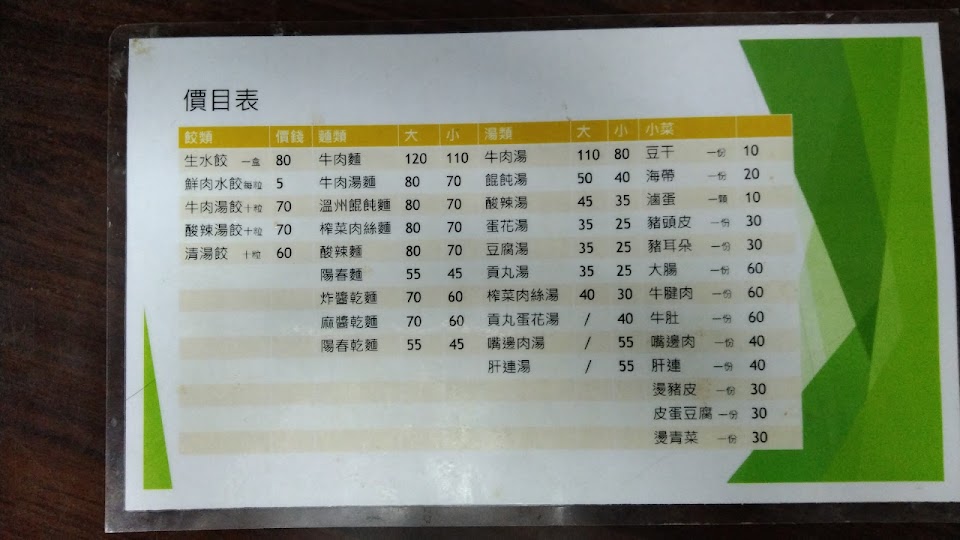 價目表
餃類 價錢 麵類 大 小 湯類 大 小 小菜
生水餃 一盒 80 牛肉麵 120 110 牛肉湯 110 80 豆干 一份 10
鮮肉水餃 每粒 5 牛肉湯麵 80 70 餛飩湯 50 40 海帶 一份 20
牛肉湯餃 十粒 70 溫州餛飩麵 80 70 酸辣湯 45 35 滷蛋 一顆 10
酸辣湯餃 十粒 70 榨菜肉絲麵 80 70 蛋花湯 35 25 豬頭皮 一份 30
清湯餃 十粒 60 酸辣麵 80 70 豆腐湯 35 25 豬耳朵 一份 30
陽春麵 55 45 貢丸湯 35 25 大腸 一份 60
炸醬乾麵 70 60 榨菜肉絲湯 40 30 牛腱肉 一份 60
麻醬乾麵 70 60 貢丸蛋花湯 / 40 牛肚 一份 60
陽春乾麵 55 45 嘴邊肉湯 / 55 嘴邊肉 一份 40
肝連湯 / 55 肝連 一份 40
燙豬皮 一份 30
皮蛋豆腐 一份 30
燙青菜 一份 30